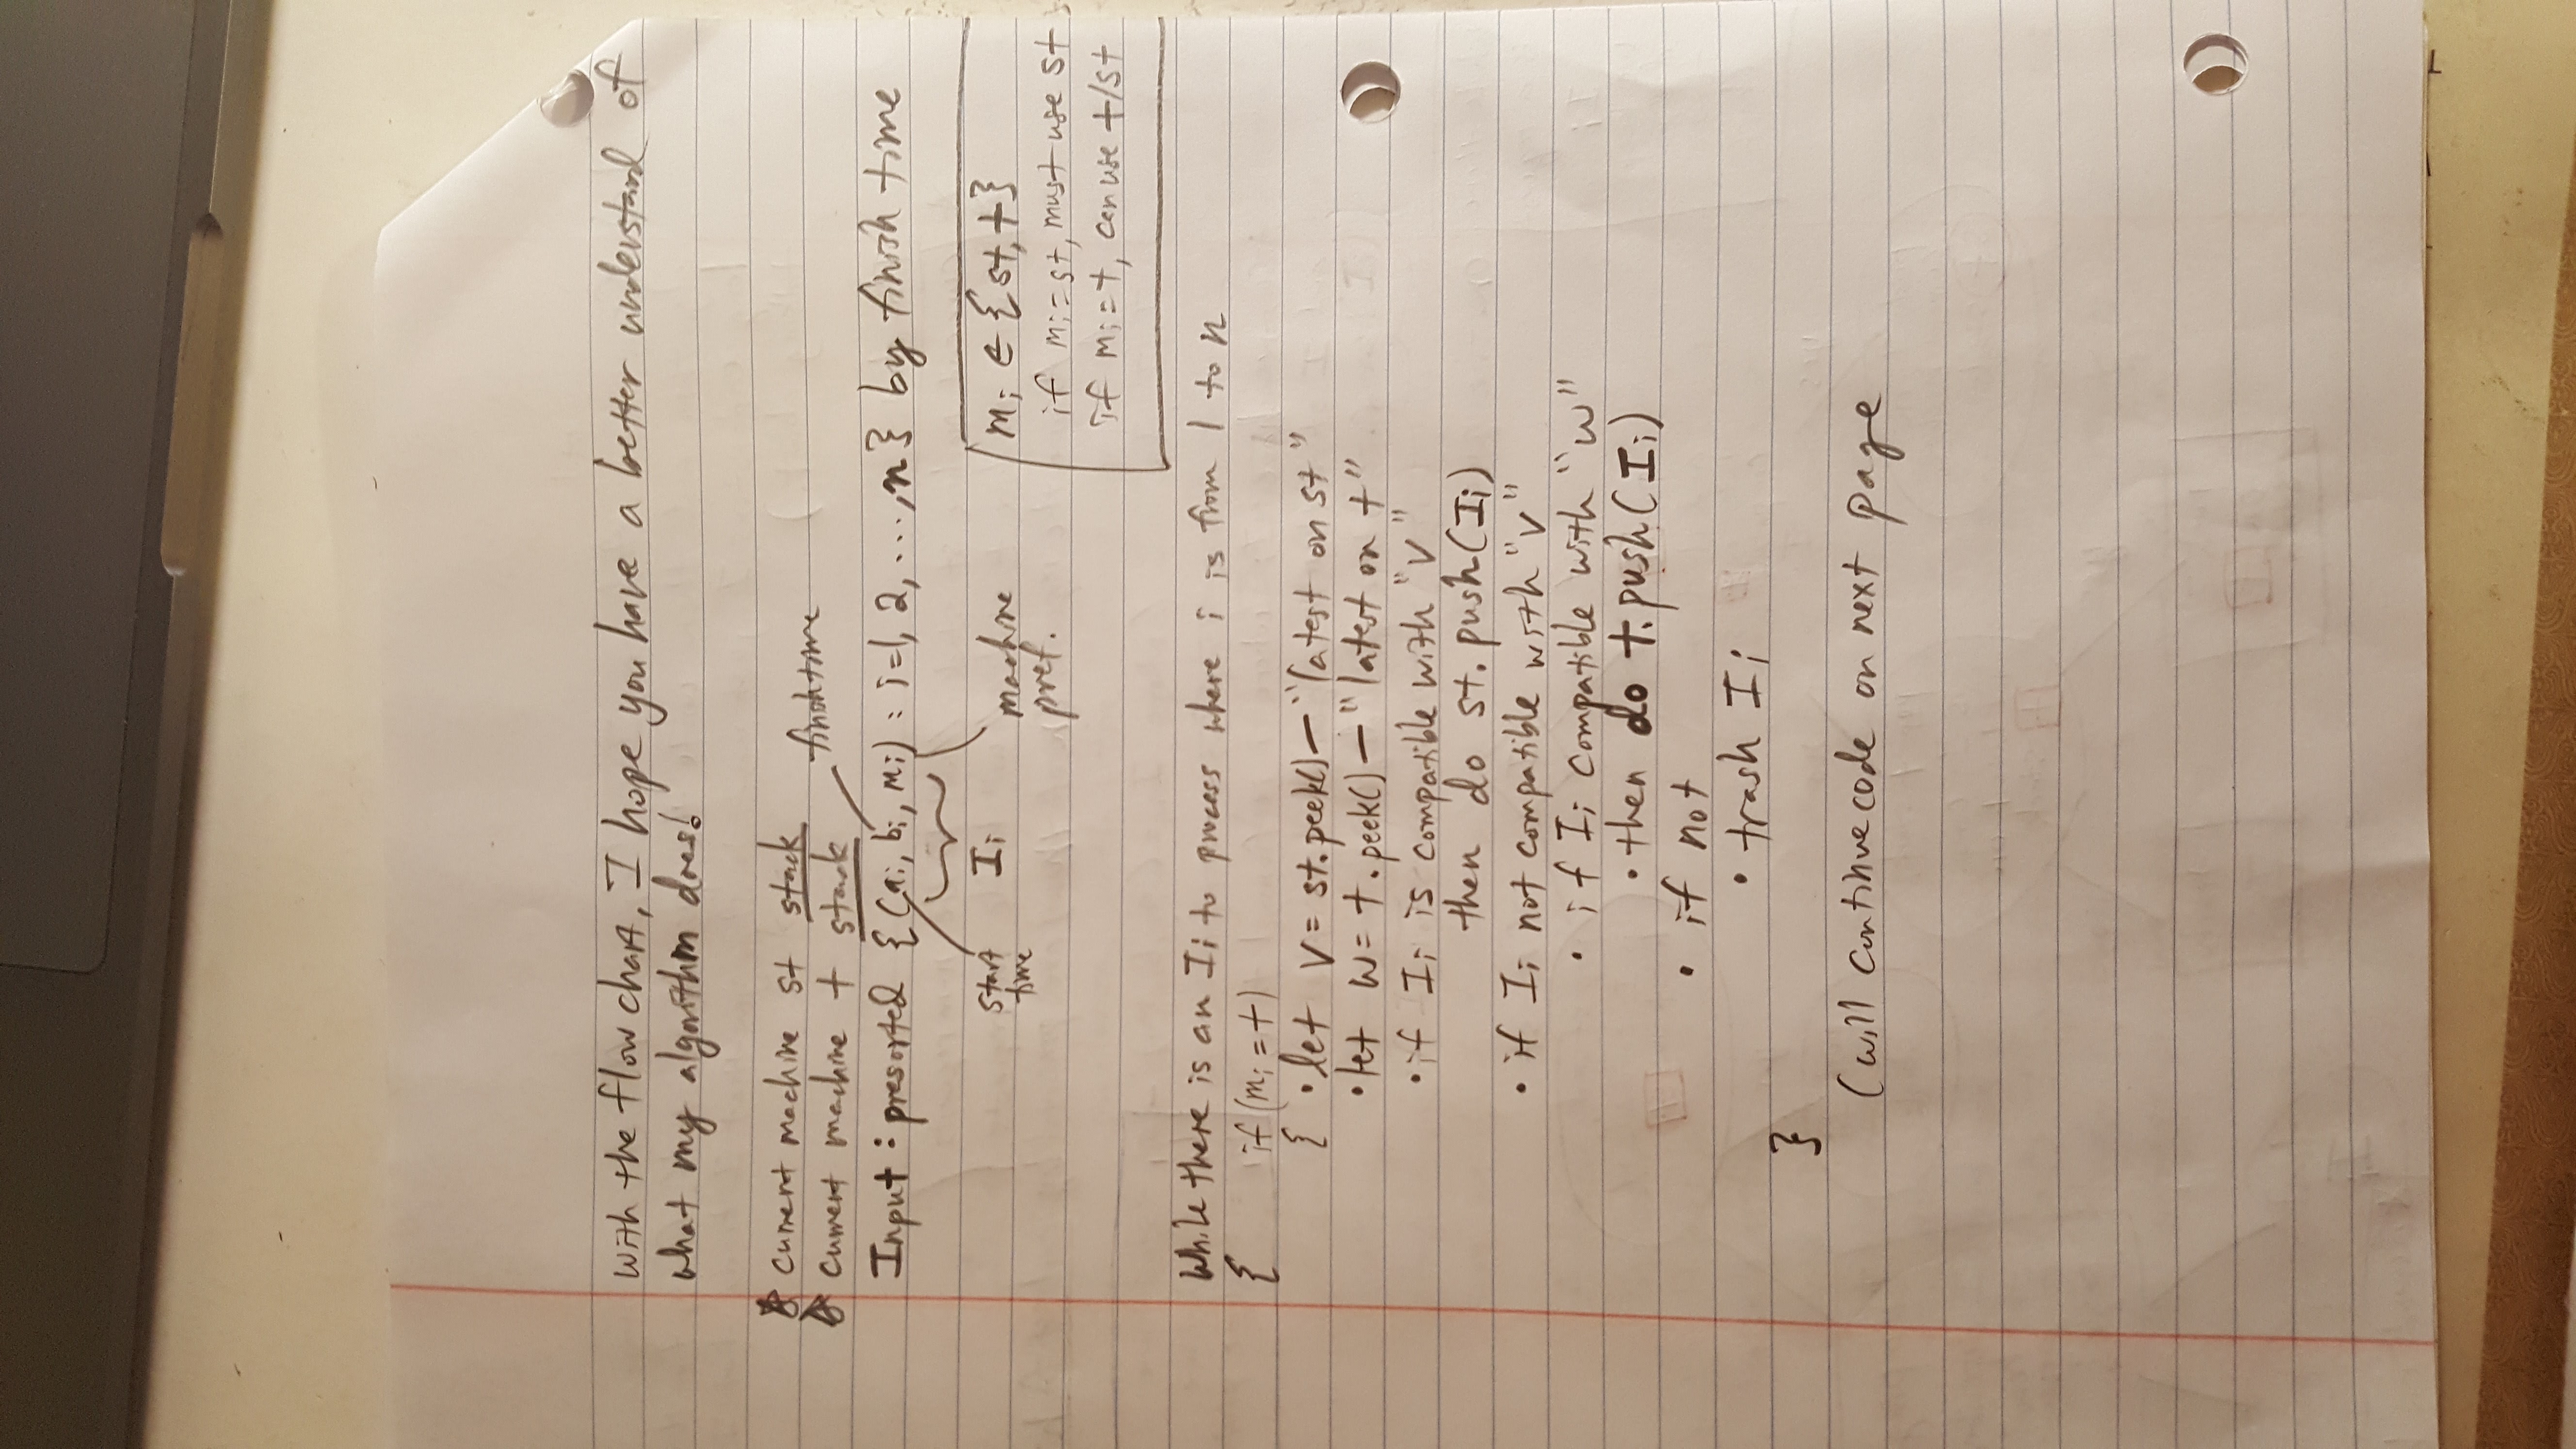 with the flow chart, I hope you have a better understand of
what my algorithm does!
current machine st stack
current machine t stack
finish time
Input : presorted {(ai, bi, mi) : i=1, 2, ..., n} by finish time
start time
Ii
machine pref.
mi ∈ {st, t}
if mi = st, must use st
if mi = t, can use t/st
While there is an Ii to process where i is from 1 to n
{ if (mi = t)
{ • let v = st.peek() — "latest on st"
• let w = t.peek() — "latest on t"
• if Ii is compatible with "v"
then do st.push(Ii)
• if Ii not compatible with "v"
• if Ii compatible with "w"
• then do t.push(Ii)
• if not
• trash Ii
}
(will continue code on next page